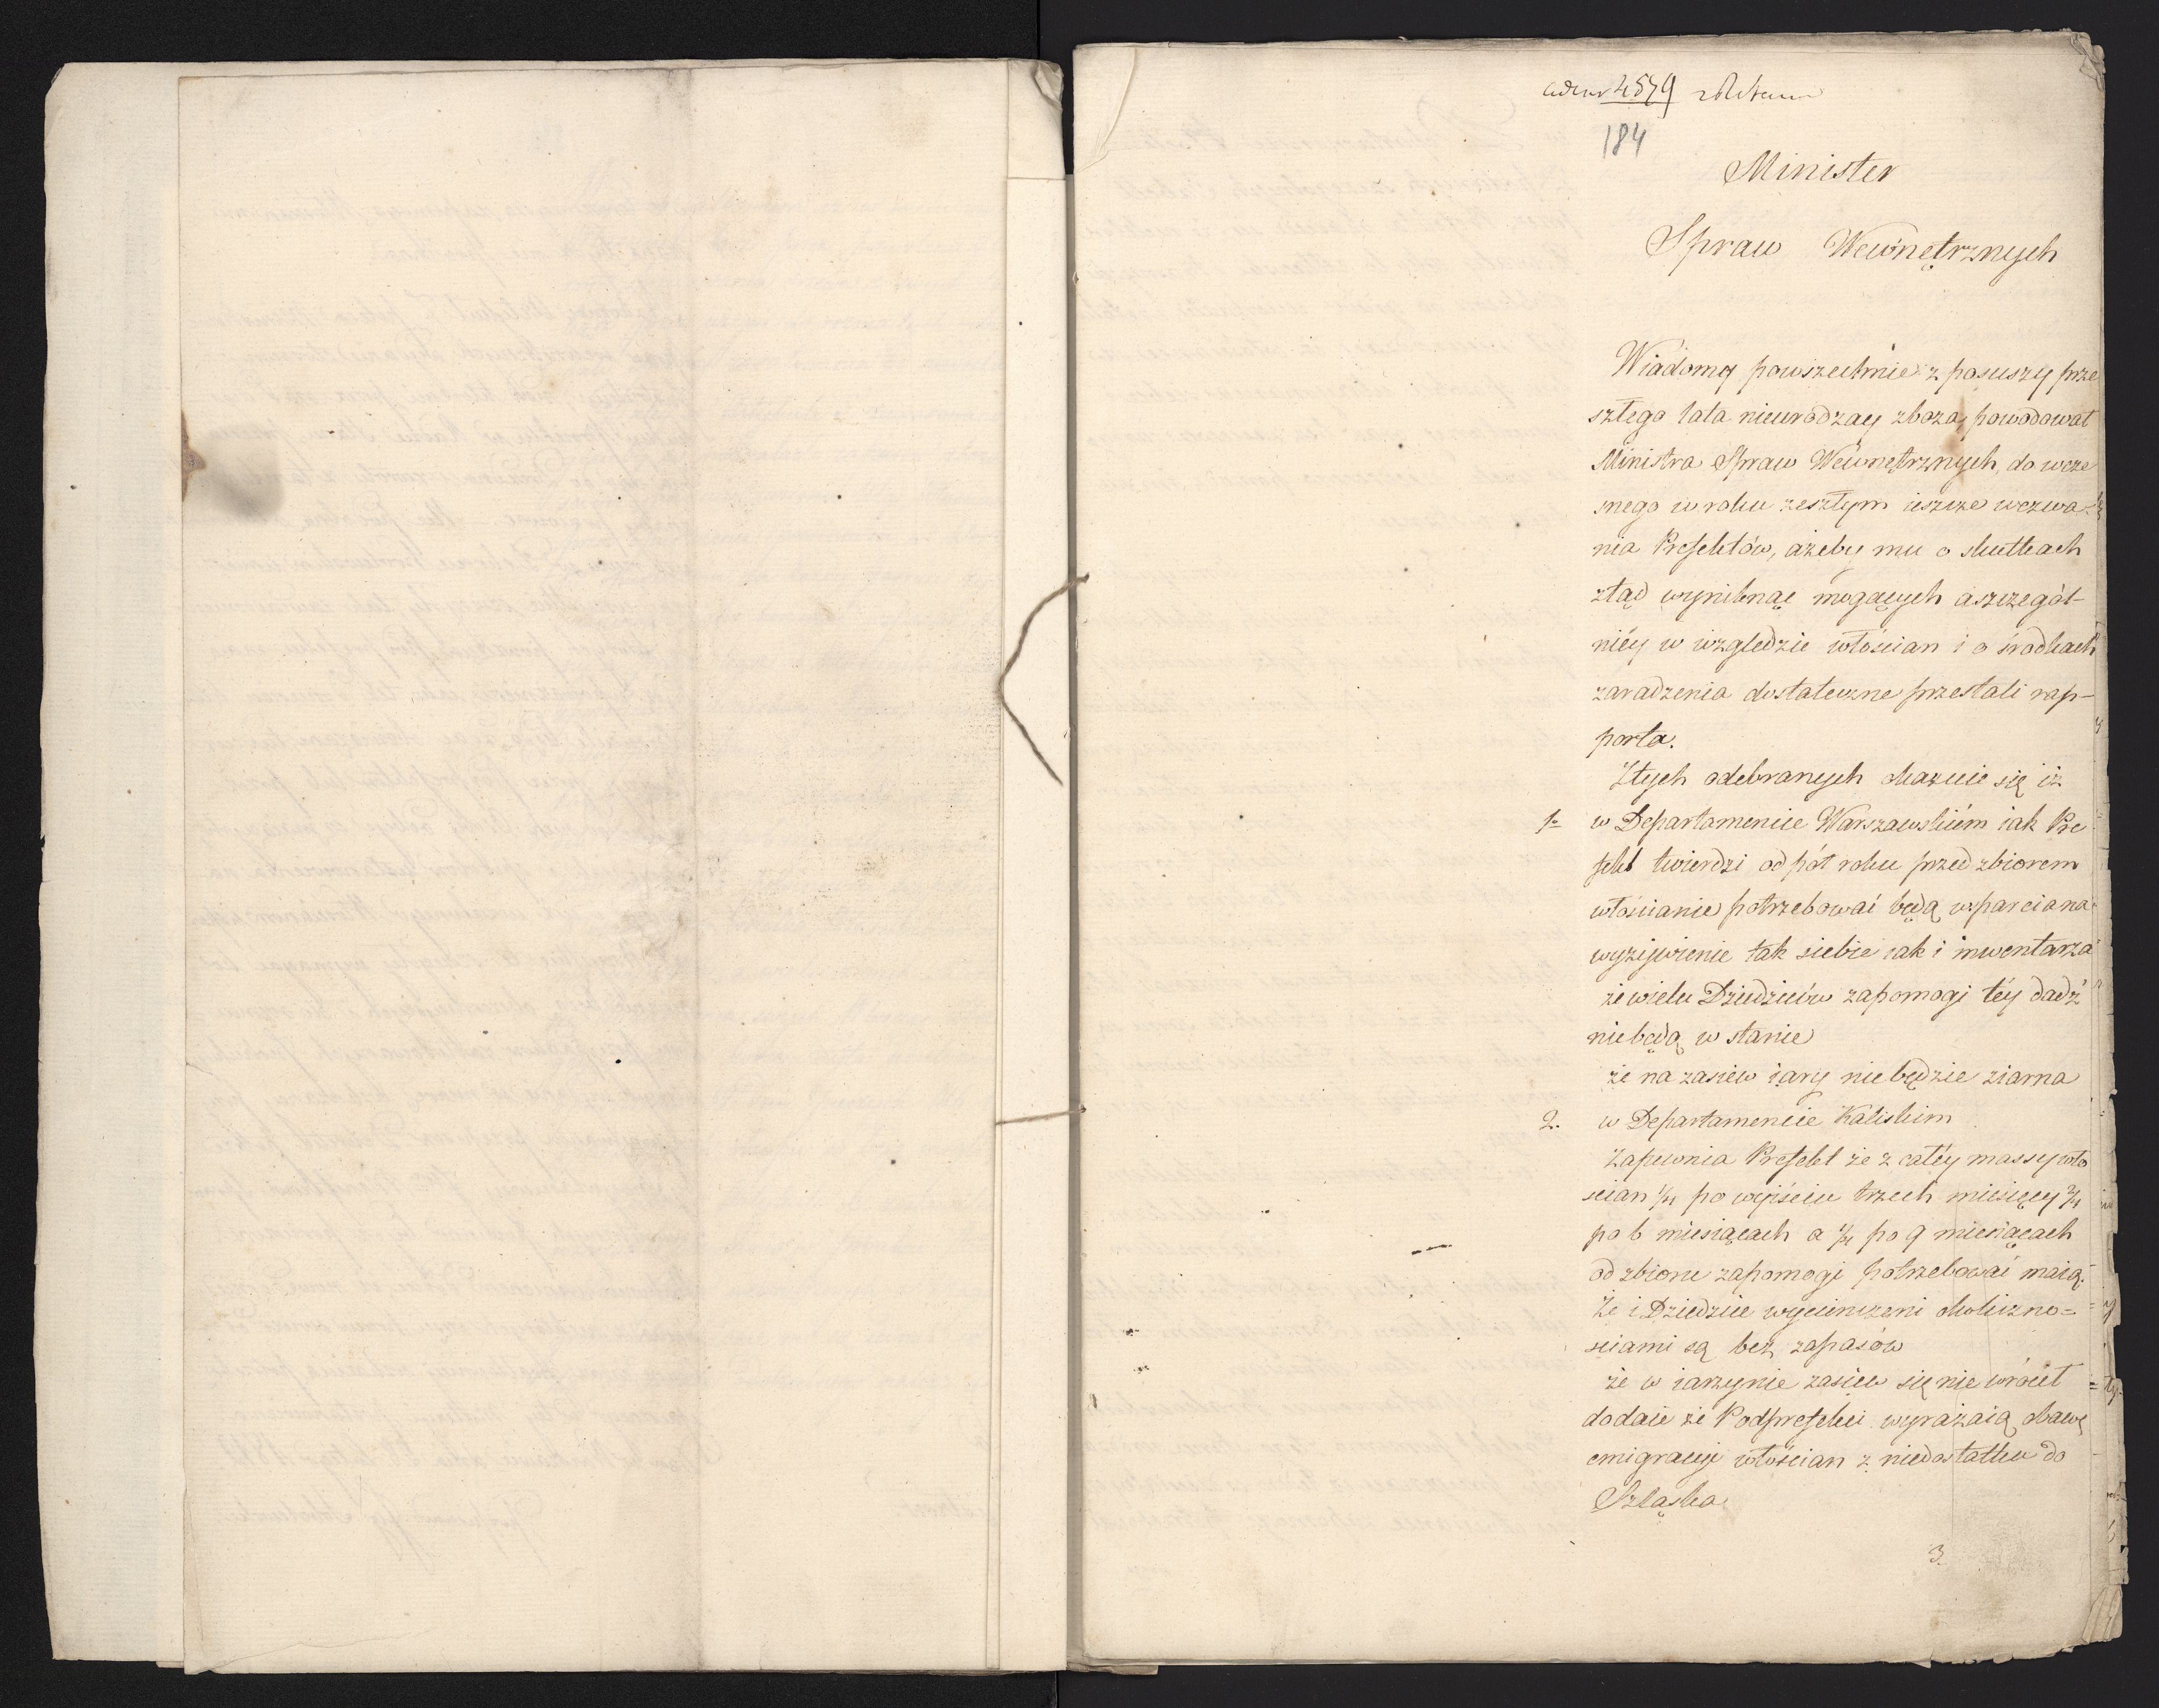 4579
184
Minister
Spraw Wewnętrznych
Wiádomy powszechnie z posuszy prze
szłego lata nieurodzay zboza, powodował
Ministra Spraw Wewnętrznych, do wcze
snego w roku zeszłym ieszcze wezwa-
nia Prefektów, ażeby mu o skutkach
ztąd wyniknąć mogących a szczegól-
niéy w względzie włościan i o środkach
zaradzenia dostateczne przesłali rap-
porta.
Ztych odebranych okazuie się iż
1º w Departamencie Warszawskiém iak Pre
fekt twierdzi od pół roku przed zbiorem
włościanie potrzebować będą wsparcia na
wyżywienie tak siebie iak i inwentarza
że wielu Dziedziców zapomogi téy dadź
niebędą w stanie
że na zasiew iary niebędzie ziarna
2. w Departamencie Kaliskim
Zapewnia Prefekt że z całéy massy wło
scian 1/4 po wyiściu trzech miesięcy 2/4
po 6 miesiącach a 1/4 po 9 miesiącach
od zbioru zapomogi potrzebować maią.
że i Dziedzice wycieńczeni okoliczno=
sciami są bez zapasów
że w iarzynie zasiew się nie wrócił
dodaie że Podprefekci wyrażaią obawę
emigracyi włościan z niedostatku do
Szląska
3.